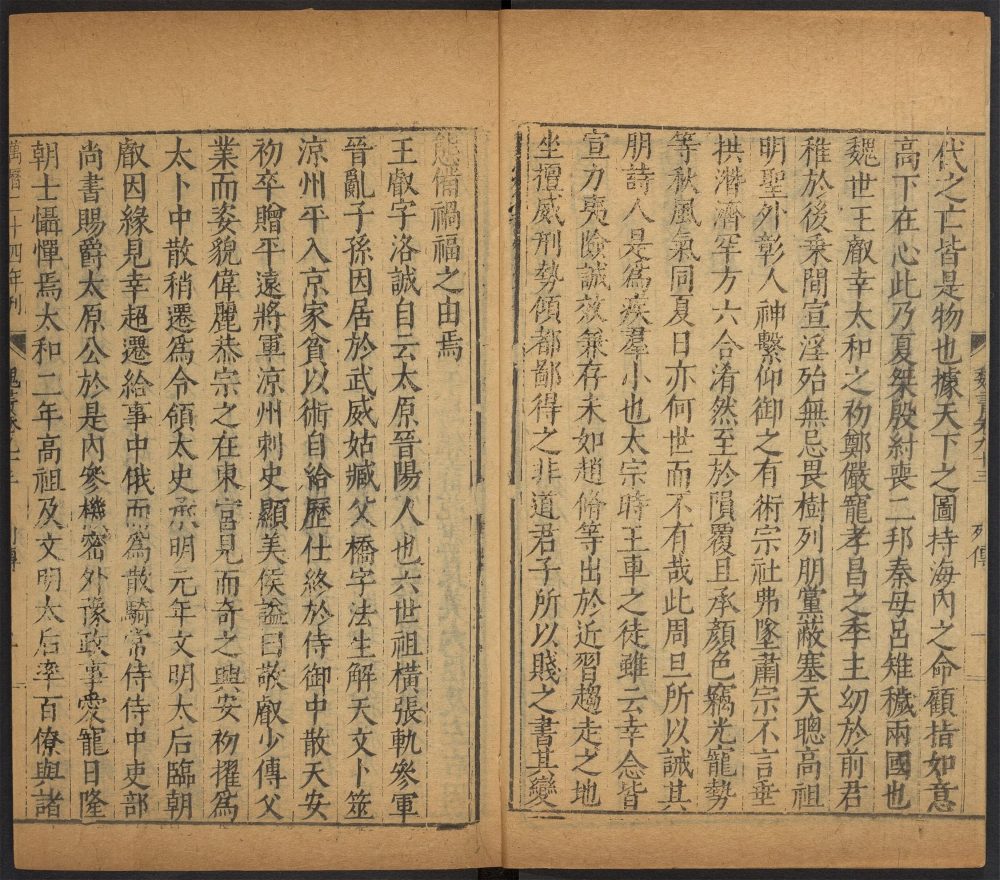 魏書卷九十三 列傳 一
代之亡皆是物也據天下之圖持海內之命顧指如意
高下在心此乃夏桀殷紂喪二邦秦母呂雉穢兩國也
魏世王叡幸太和之初鄭儼寵孝昌之季主幼於前君
稚於後乗間宣淫殆無忌畏樹列朋黨蔽塞天聰高祖
明聖外彰人神繫仰御之有術宗社弗墜肅宗不言垂
拱潛濟罕方六合淆然至於隕覆且承顏色竊光寵勢
等秋風氣同夏日亦何世而不有哉此周旦所以誡其
朋詩人是為疾羣小也太宗時王車之徒雖云幸念皆
宣力夷險誠效兼存未如趙脩等出於近習趨走之地
坐擅威刑勢傾都鄙得之非道君子所以賤之書其變
態備禍福之由焉
王叡字洛誠自云太原晉陽人也六世祖橫張軌參軍
晉亂子孫因居於武威姑臧父橋字法生解天文卜筮
涼州平入京家貧以術自給歷仕終於侍御中散天安
初卒贈平遠將軍涼州刺史顯美侯謚曰敬叡少傳父
業而姿貌偉麗恭宗之在東宮見而奇之興安初擢為
太卜中散稍遷為令領太史承明元年文明太后臨朝
叡因緣見幸超遷給事中俄而為散騎常侍侍中吏部
尚書賜爵太原公於是內參機密外豫政事愛寵日隆
朝士慴憚焉太和二年高祖及文明太后率百僚與諸
萬曆二十四年刊